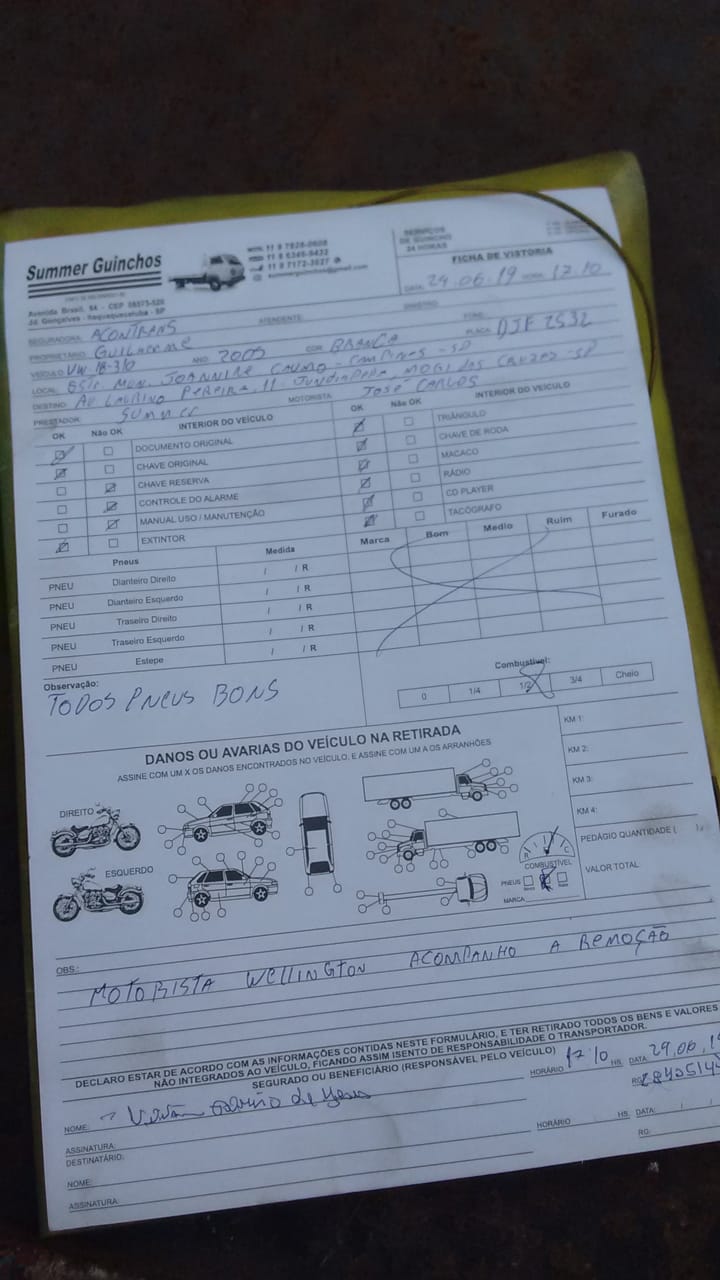 Summer Guinchos
11 9 7828-0608
11 9 6346-9432
11 9 7172-3027
summerguinchos@gmail.com
SERVIÇOS
DE GUINCHO
24 HORAS
FICHA DE VISTORIA
Avenida Brasil, 84 - CEP 08573-520
Jd. Gonçalves - Itaquaquecetuba - SP
DATA: 29.06.19 HORA: 12.10
SEGURADORA: ACONTRANS ATENDENTE:
PROPRIETÁRIO: GUILHERME
VEÍCULO: VW 18-310 ANO 2005 COR BRANCA PLACA: DJF 2532
LOCAL: ESTR. MUN. JOANNINE - CAMPINAS - SP
DESTINO: AV LAURINO PEREIRA, 11 - JUNDIAPEBA MOGI DAS CRUZES - SP
PRESTADOR: SUMMER MOTORISTA JOSÉ CARLOS
OK Não OK INTERIOR DO VEÍCULO OK Não OK INTERIOR DO VEÍCULO
DOCUMENTO ORIGINAL TRIÂNGULO
CHAVE ORIGINAL CHAVE DE RODA
CHAVE RESERVA MACACO
CONTROLE DO ALARME RÁDIO
MANUAL USO / MANUTENÇÃO CD PLAYER
EXTINTOR TACÓGRAFO
Pneus Medida Marca Bom Medio Ruim Furado
PNEU Dianteiro Direito / / R
PNEU Dianteiro Esquerdo / / R
PNEU Traseiro Direito / / R
PNEU Traseiro Esquerdo / / R
PNEU Estepe / / R
Observação:
TODOS PNEUS BONS
Combustível:
0 1/4 1/2 3/4 Cheio
DANOS OU AVARIAS DO VEÍCULO NA RETIRADA
ASSINE COM UM X OS DANOS ENCONTRADOS NO VEÍCULO, E ASSINE COM UM A OS ARRANHÕES
KM 1:
KM 2:
KM 3:
KM 4:
DIREITO
ESQUERDO
R C
COMBUSTÍVEL
PNEUS
MARCA
PEDÁGIO QUANTIDADE (
VALOR TOTAL
OBS.:
MOTORISTA WELLINGTON ACOMPANHO A REMOÇÃO
DECLARO ESTAR DE ACORDO COM AS INFORMAÇÕES CONTIDAS NESTE FORMULÁRIO, E TER RETIRADO TODOS OS BENS E VALORES
NÃO INTEGRADOS AO VEÍCULO, FICANDO ASSIM ISENTO DE RESPONSABILIDADE O TRANSPORTADOR.
SEGURADO OU BENEFICIÁRIO (RESPONSÁVEL PELO VEÍCULO)
HORÁRIO 12:10 HS. DATA: 29.06.19
NOME:
RG:
ASSINATURA:
DESTINATÁRIO:
HORÁRIO HS. DATA: / /
NOME:
RG:
ASSINATURA: